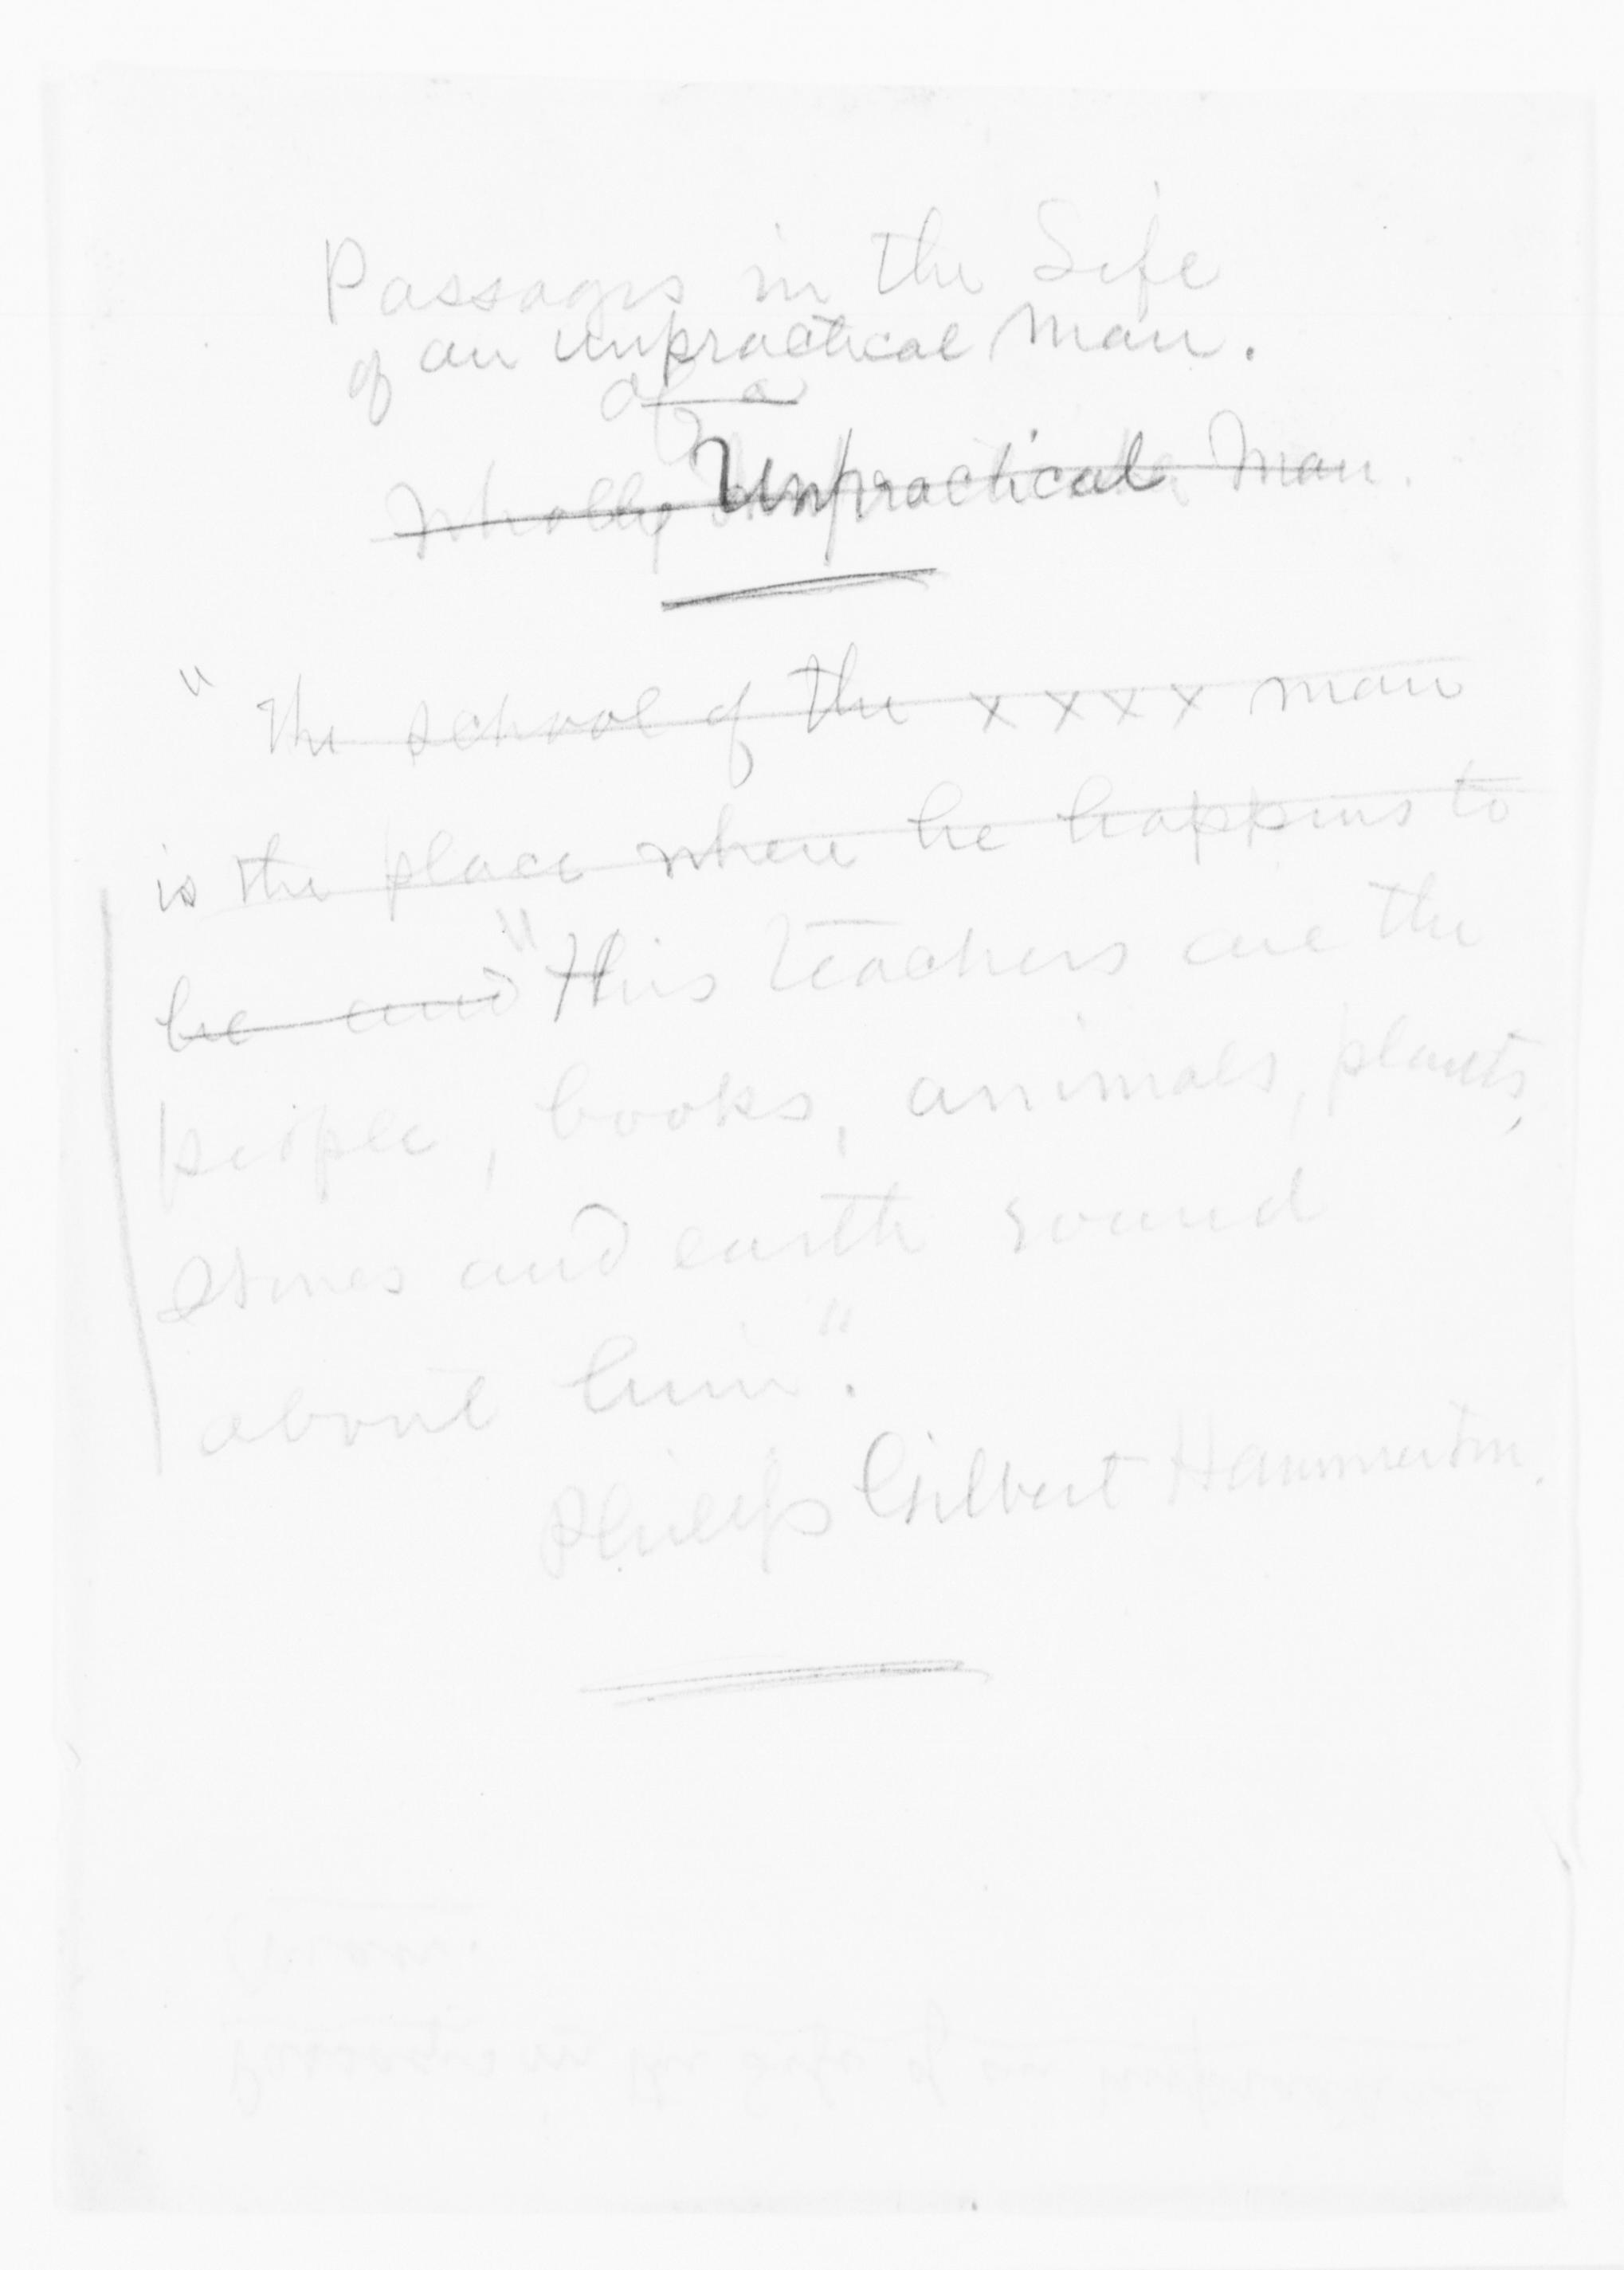 Passages in the Life
of an unpractical Man.
of a
Wholly Unpractical Man.
" The school of the x x x x man
is the place where he happens to
be and "His teachers are the
people, books, animals, plants,
stones and earth round
about him."
Philip Gilbert Hammerton.